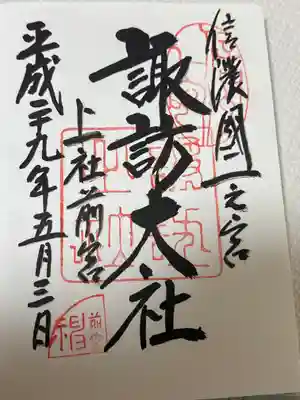 信濃國一之宮
諏訪大社
上社前宮
平成二十九年五月三日